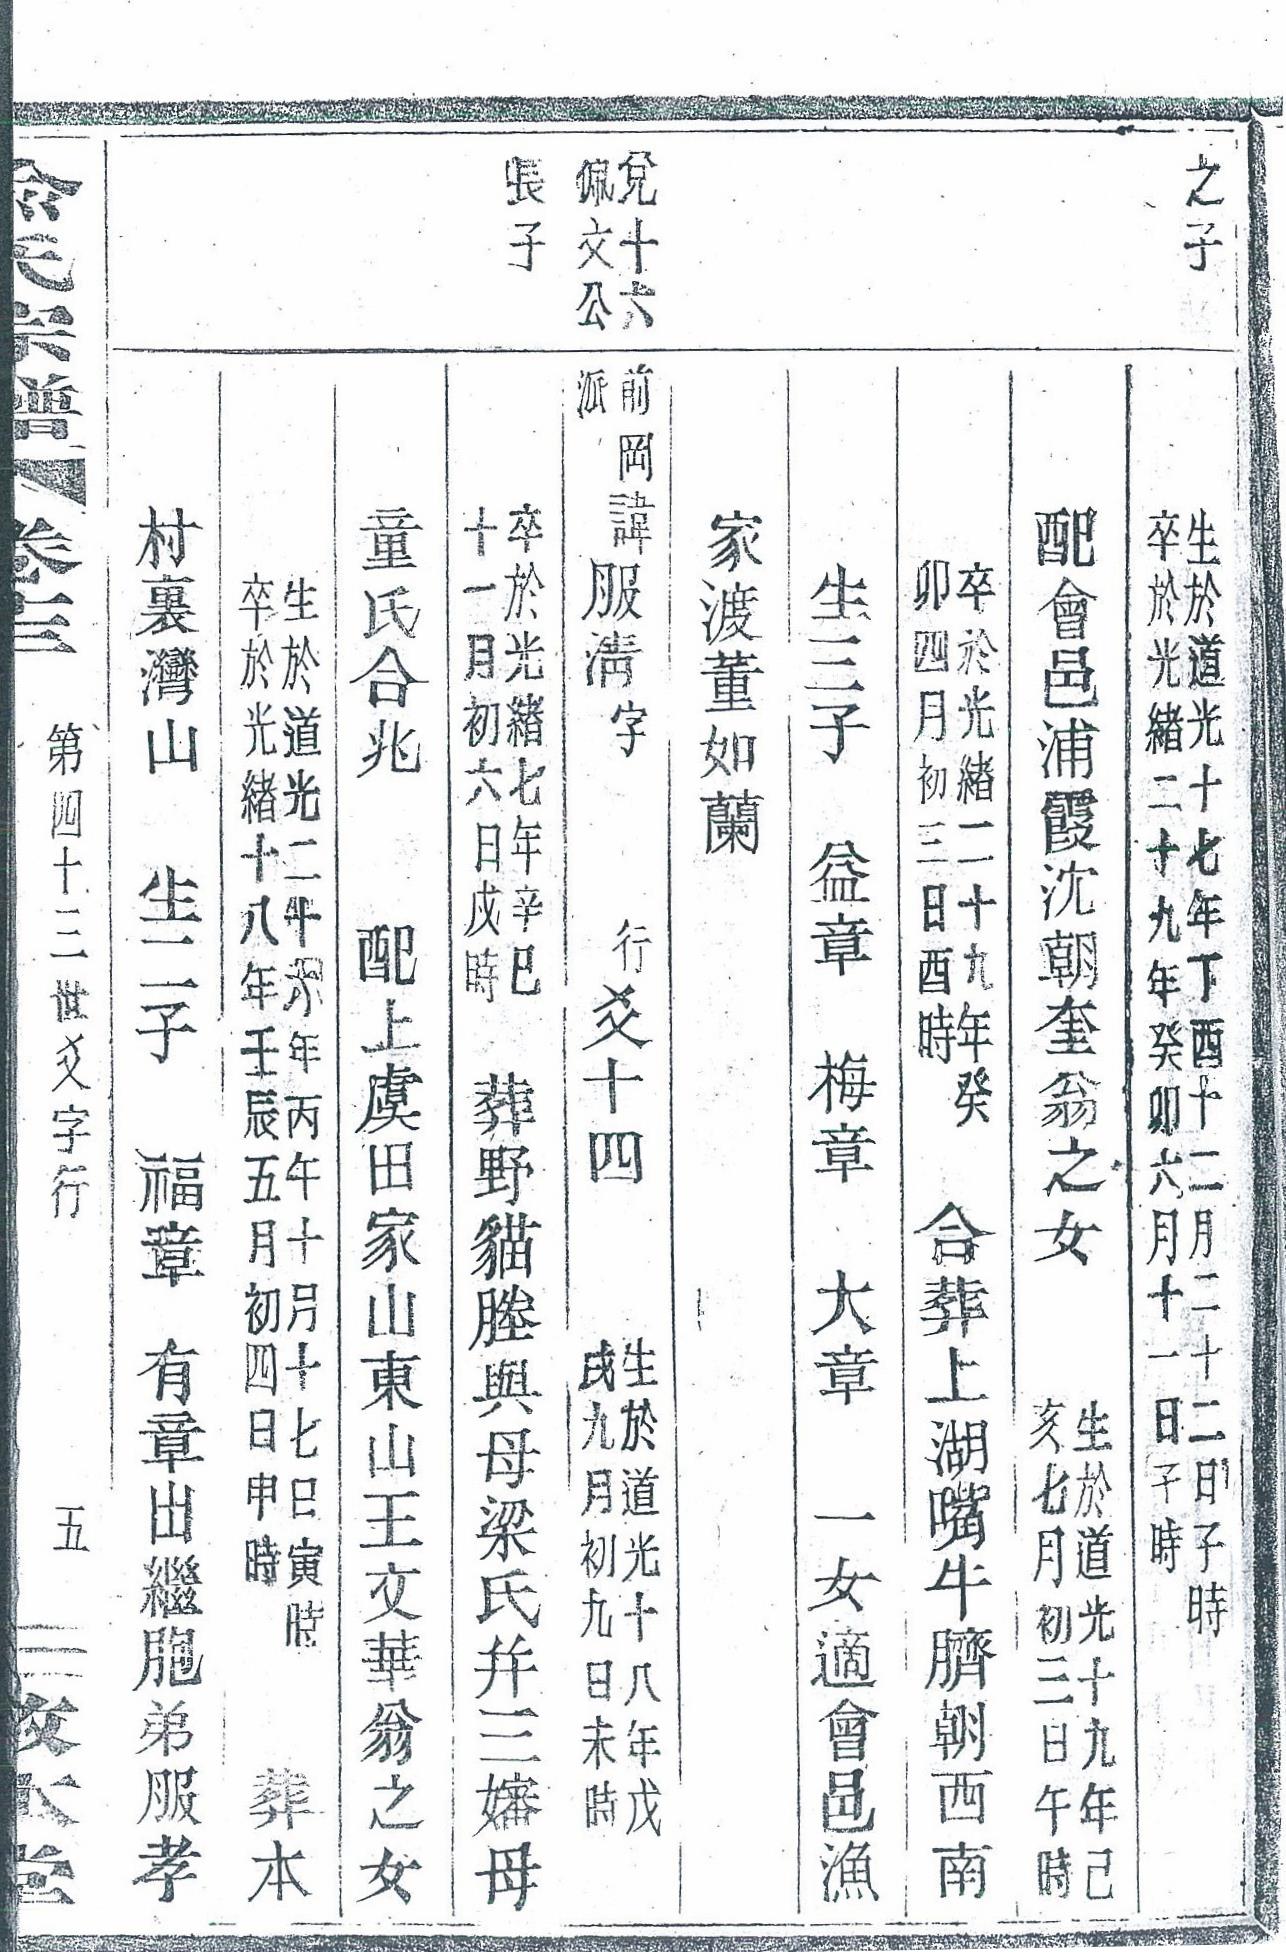 之子
生於道光十七年丁酉十二月二十二日子時
卒於光緒二十九年癸卯六月十一日子時
配會邑浦霞沈朝奎翁之女
生於道光十九年己
亥七月初三日午時
卒於光緒二十九年癸
卯四月初三日酉時
合葬上湖嘴牛臍朝西南
生三子 益章 梅章 大章 一女適會邑漁
家渡董如蘭
兌十六
佩文公
長子
前岡諱
派
服淸字
行爻十四
生於道光十八年戊
戌九月初九日未時
卒於光緒七年辛巳
十一月初六日戌時
葬野貓塍與母梁氏幷三嬸母
童氏合兆 配上虞田家山東山王文華翁之女
生於道光二十六年丙午十月十七日寅時
卒於光緒十八年壬辰五月初四日申時
葬本
村裏灣山 生二子 福章 有章出繼胞弟服孝
氏宗譜 卷三 第四十三世爻字行 五 三 堂